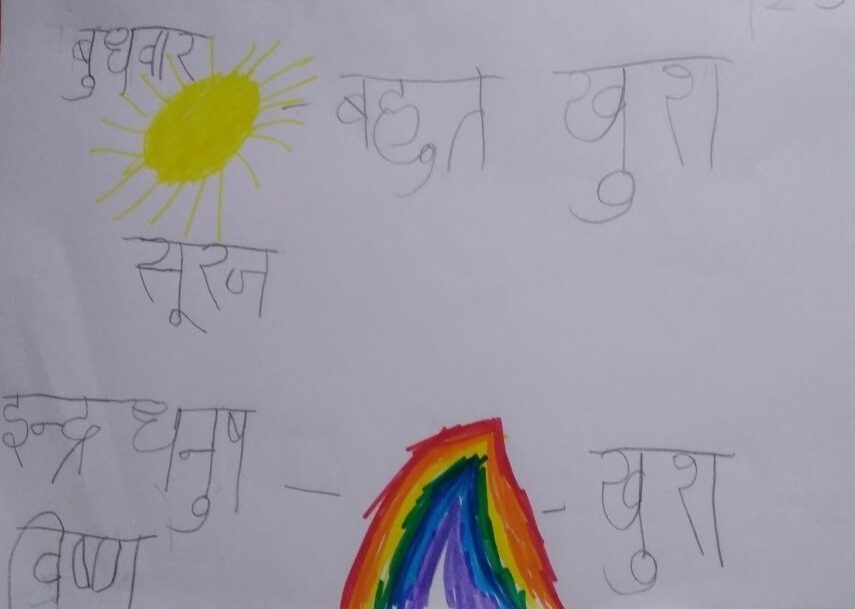 बुधवार
- बहुत खुश
सूरज
इन्द्रधनुष - - खुश
विष्ण